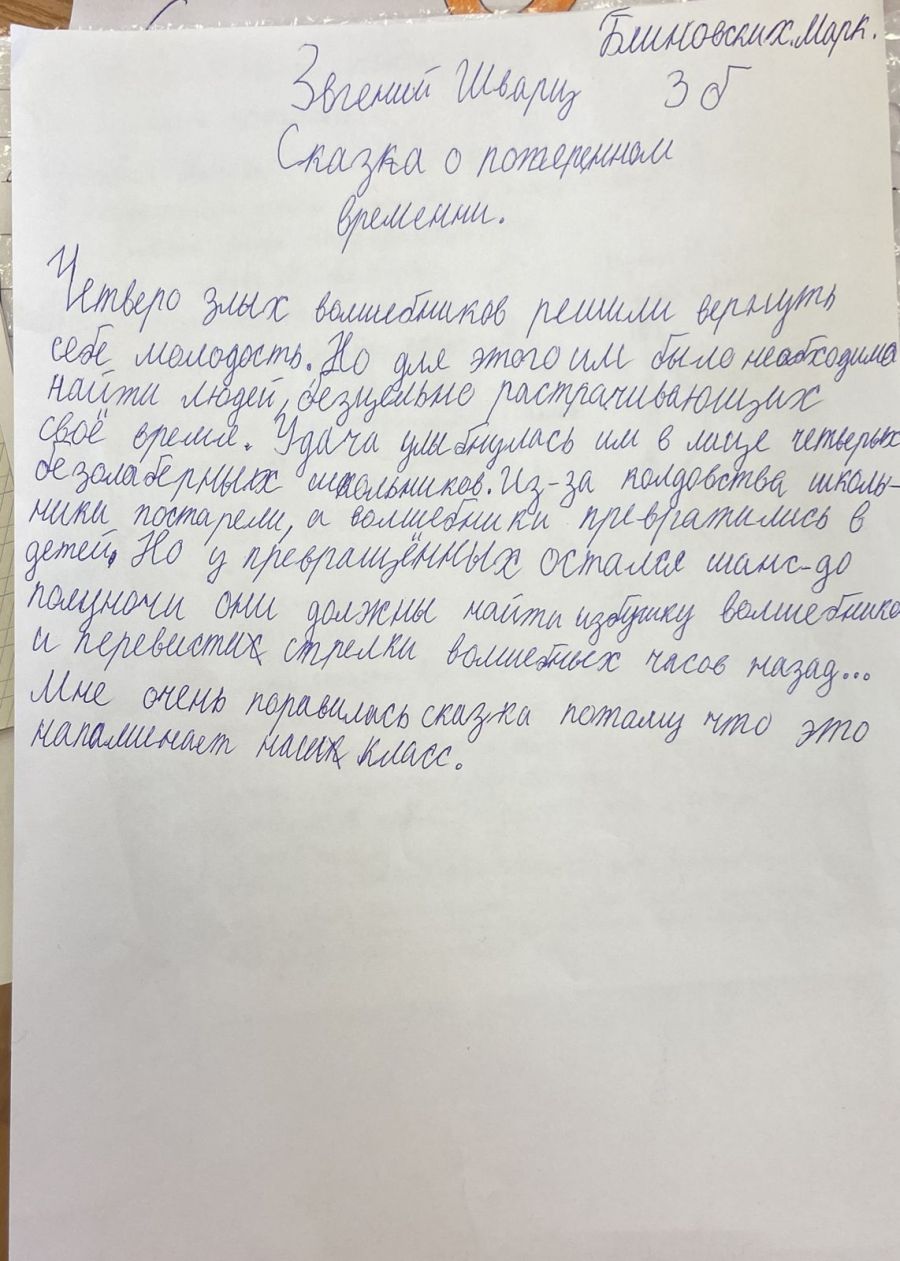 Блиновских.Марк.
Звгений Шварц 3 б
Сказка о потеренном
временни.
Четверо злых волшебников решили вернуть
себе молодость. Но для этого им было необходимо
найти людей, безцельно растрачивающих
своё время. Удача улыбнулась им в лице четверых
безолаберных школьников. Из-за колдовства школь-
ники постарели, а волшебники превратились в
детей. Но у превращённых остался шанс-до
полуночи они должны найти избушку волшебнико
и перевисти стрелки волшебных часов назад...
Мне очень поравилась сказка потому что это
напоминает наш класс.